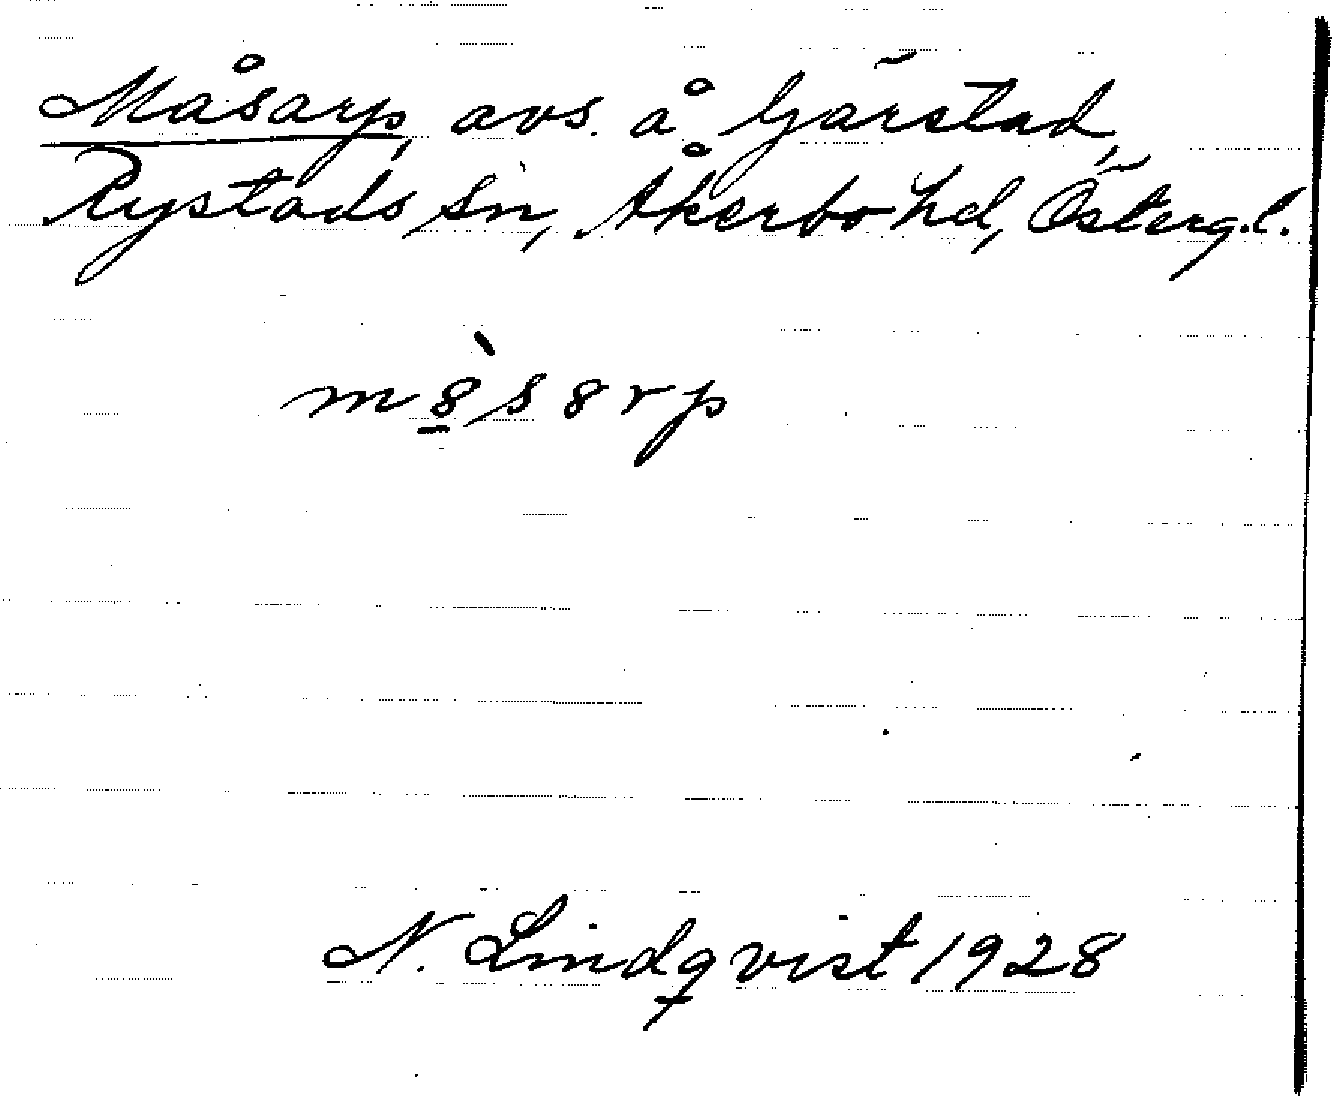 Måsarp, avs. å Gärstad,
Rystads sn, Åkerbo hd, Österg.l.
m8̱̀s8rp
N. Lindqvist 1928